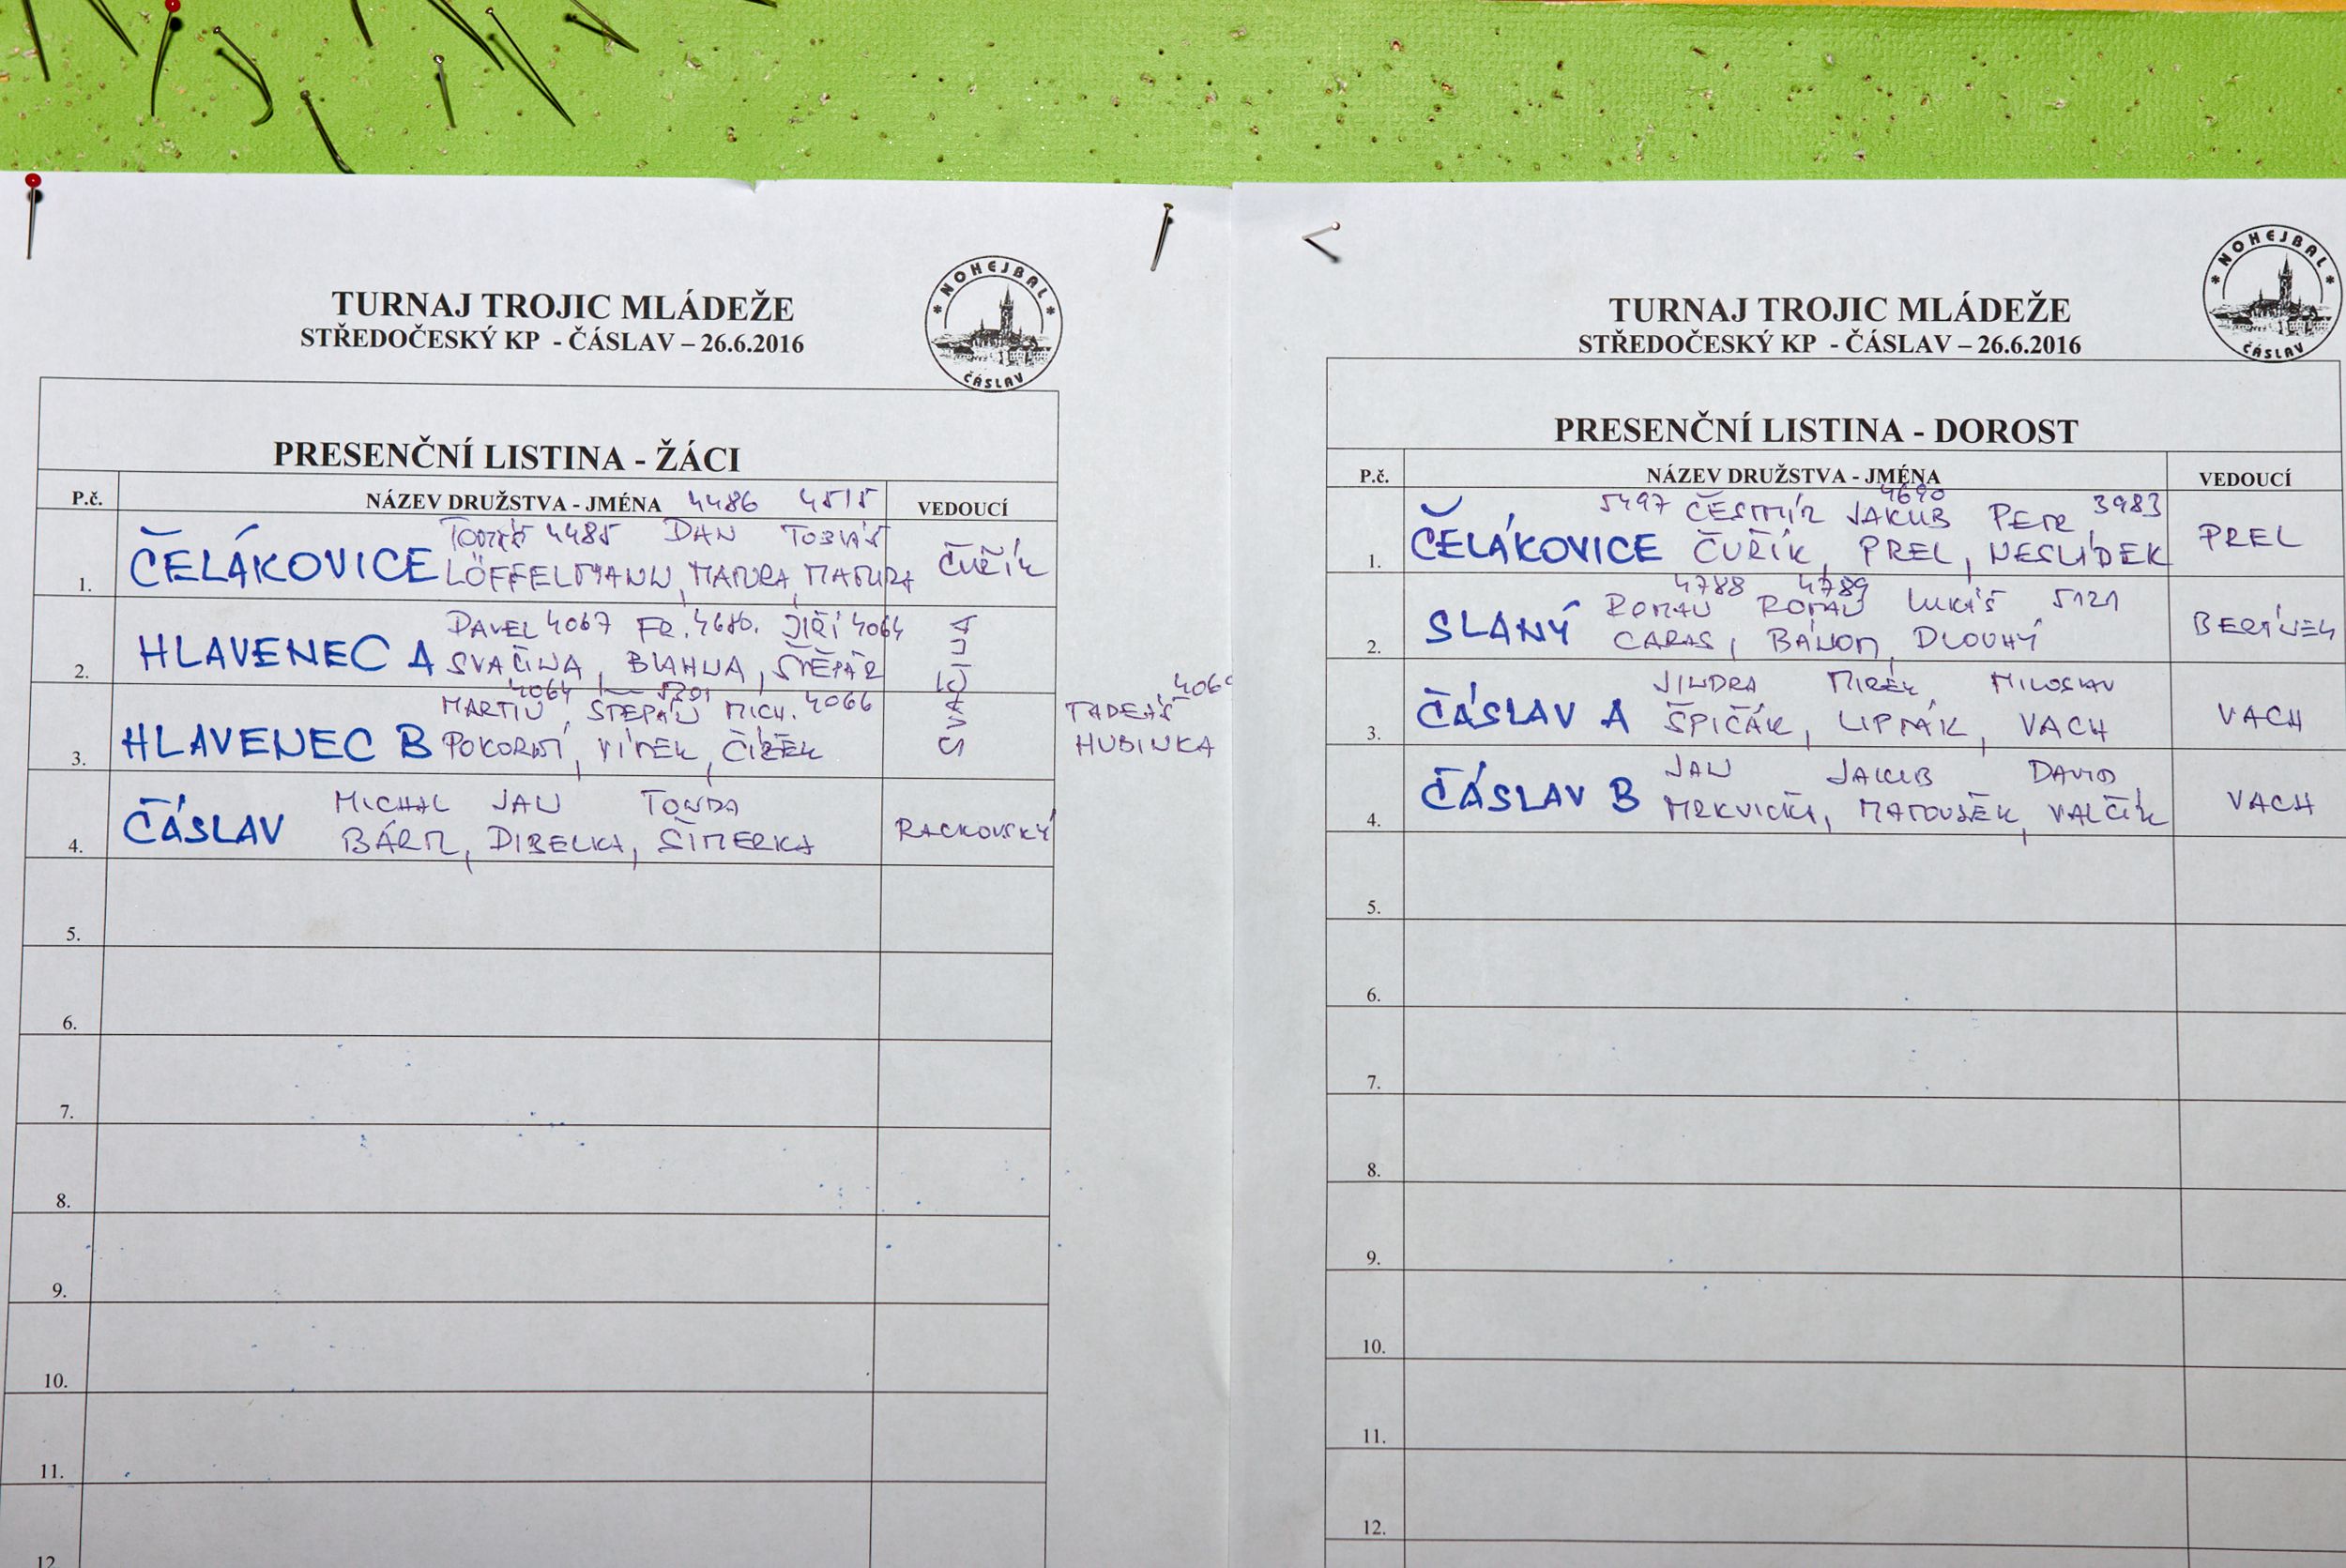 TURNAJ TROJIC MLÁDEŽE
STŘEDOČESKÝ KP - ČÁSLAV – 26.6.2016
* NOHEJBAL *
ČÁSLAV
PRESENČNÍ LISTINA - ŽÁCI
P.č. NÁZEV DRUŽSTVA - JMÉNA 4486 4515 VEDOUCÍ
TOMÁŠ 4485 DAN TOBIÁŠ
1. ČELÁKOVICE LÖFFELMANN, MATURA, MATURA ČUŘÍK
DAVEL 4067 FR. 4680. JIŘÍ 4064
2. HLAVENEC A SVAČINA, BLAHNA, ŠTĚPÁR
SVAČINA
MARTIN 4064, ŠTĚPÁN 5201 MICH. 4066
3. HLAVENEC B POKORNÍ, VÍTEK, ČÍŽEK
TADEÁŠ 406
HUBINKA
MICHAL JAN TONDA
4. ČÁSLAV BÁRTL, DIBELKA, ŠIMERKA RACKOVSKÝ
5.
6.
7.
8.
9.
10.
11.
12.
TURNAJ TROJIC MLÁDEŽE
STŘEDOČESKÝ KP - ČÁSLAV – 26.6.2016
* NOHEJBAL *
ČÁSLAV
PRESENČNÍ LISTINA - DOROST
P.č. NÁZEV DRUŽSTVA - JMÉNA VEDOUCÍ
5497 ČESTMÍR JAKUB 4690 PETR 3983
1. ČELÁKOVICE ČUŘÍK, PREL, NESLÁDEK PREL
4788 4789
ROMAN ROMAN LUKÁŠ 5121
2. SLANÝ CARAS, DLOUHÝ
JINDRA MIREK MILOSLAV
3. ČÁSLAV A ŠPIČÁK, LIPTÁK, VACH VACH
JAN JAKUB DAVID
4. ČÁSLAV B MRKVIČKA, MATOUŠEK, VALČÍK VACH
5.
6.
7.
8.
9.
10.
11.
12.